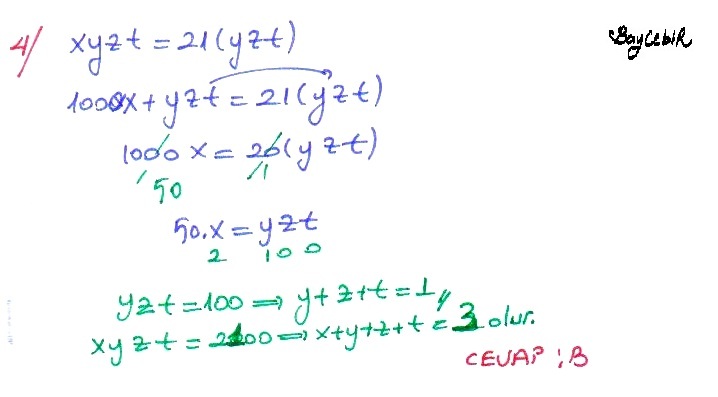 BaycebiR
4/ xyzt = 21(yzt)
1000x + yzt = 21(yzt)
1000 x = 20(yzt)
50 1
50.x = yzt
2 1 0 0
yzt = 100 ⇒ y+z+t = 1,,
xyzt = 2100 ⇒ x+y+z+t = 3 olur.
CEVAP : B